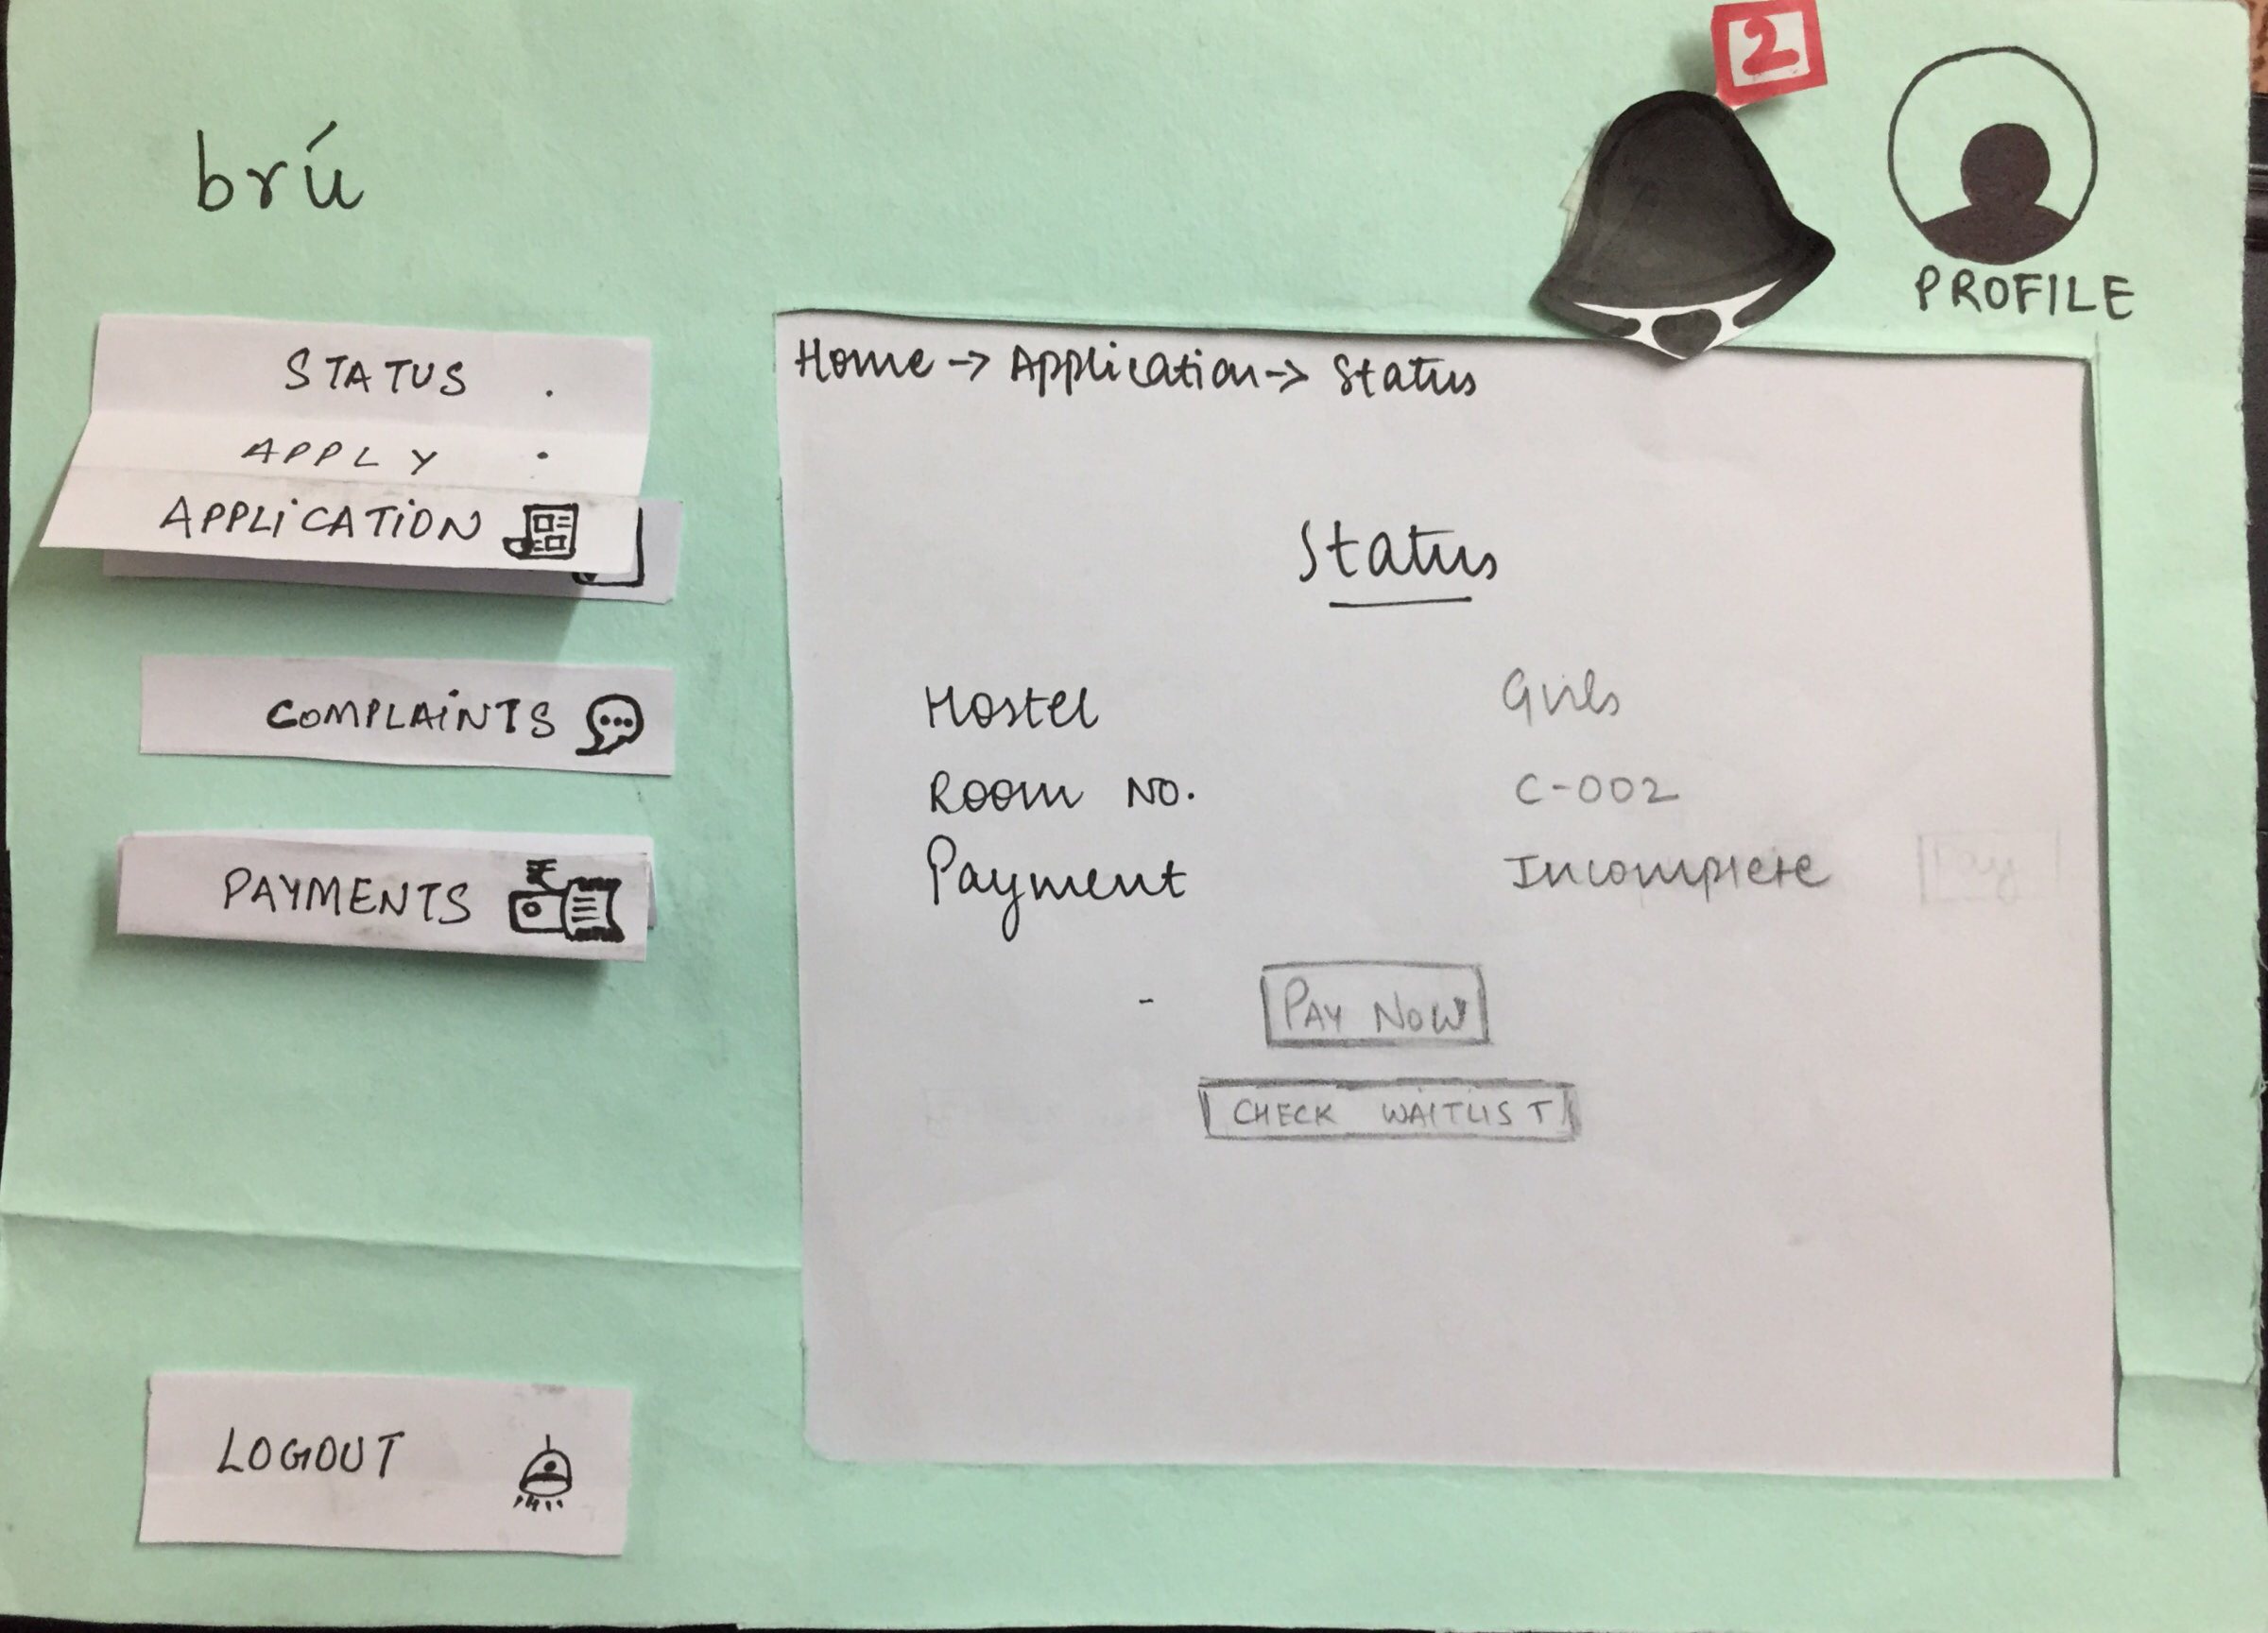 2
brú
PROFILE
STATUS .
APPLY .
APPLICATION
COMPLAINTS
PAYMENTS
LOGOUT
Home -> Application -> Status
Status
Hostel Girls
Room No. C-002
Payment Incomplete
Pay
- PAY NOW
CHECK WAITLIST